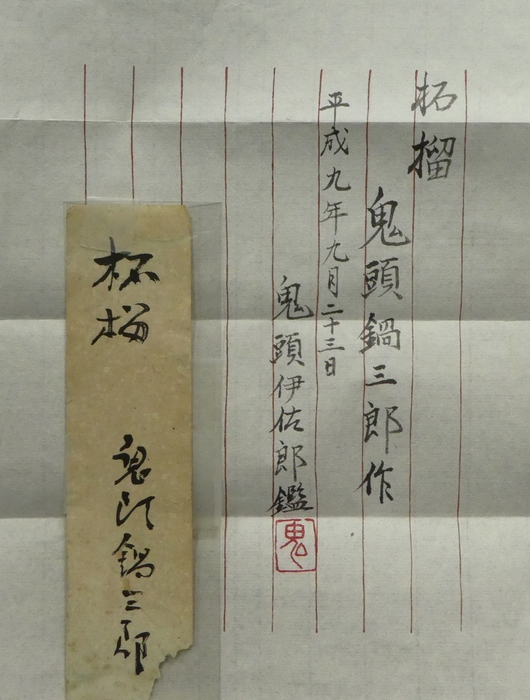 柘榴
鬼頭鍋三郎作
平成九年九月二十三日
鬼頭伊佐郎鑑
鬼
柘榴
鬼頭鍋三郎